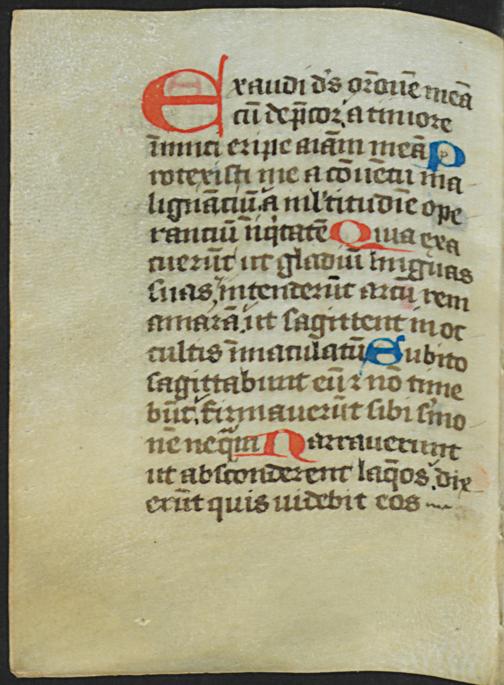 Exaudi d̄s or̄onē meā
cū dep̄cor, a timore
īmici eripe aīam meā P
rotexisti me a cōuētu ma
lignāciū, a ml̄titudīe ope
ranciū īiq̄tatē Quia exa
cuerūt ut gladiū linguas
suas, intenderūt arcū rem
amarā, ut sagittent in oc
cultis īmaculatū Subito
sagittabunt eū ⁊ nō time
būt, firmauerūt sibi s̄mo
nē neq̄m Narrauerunt
ut absconderent laq̄os, dix
erūt quis uidebit eos